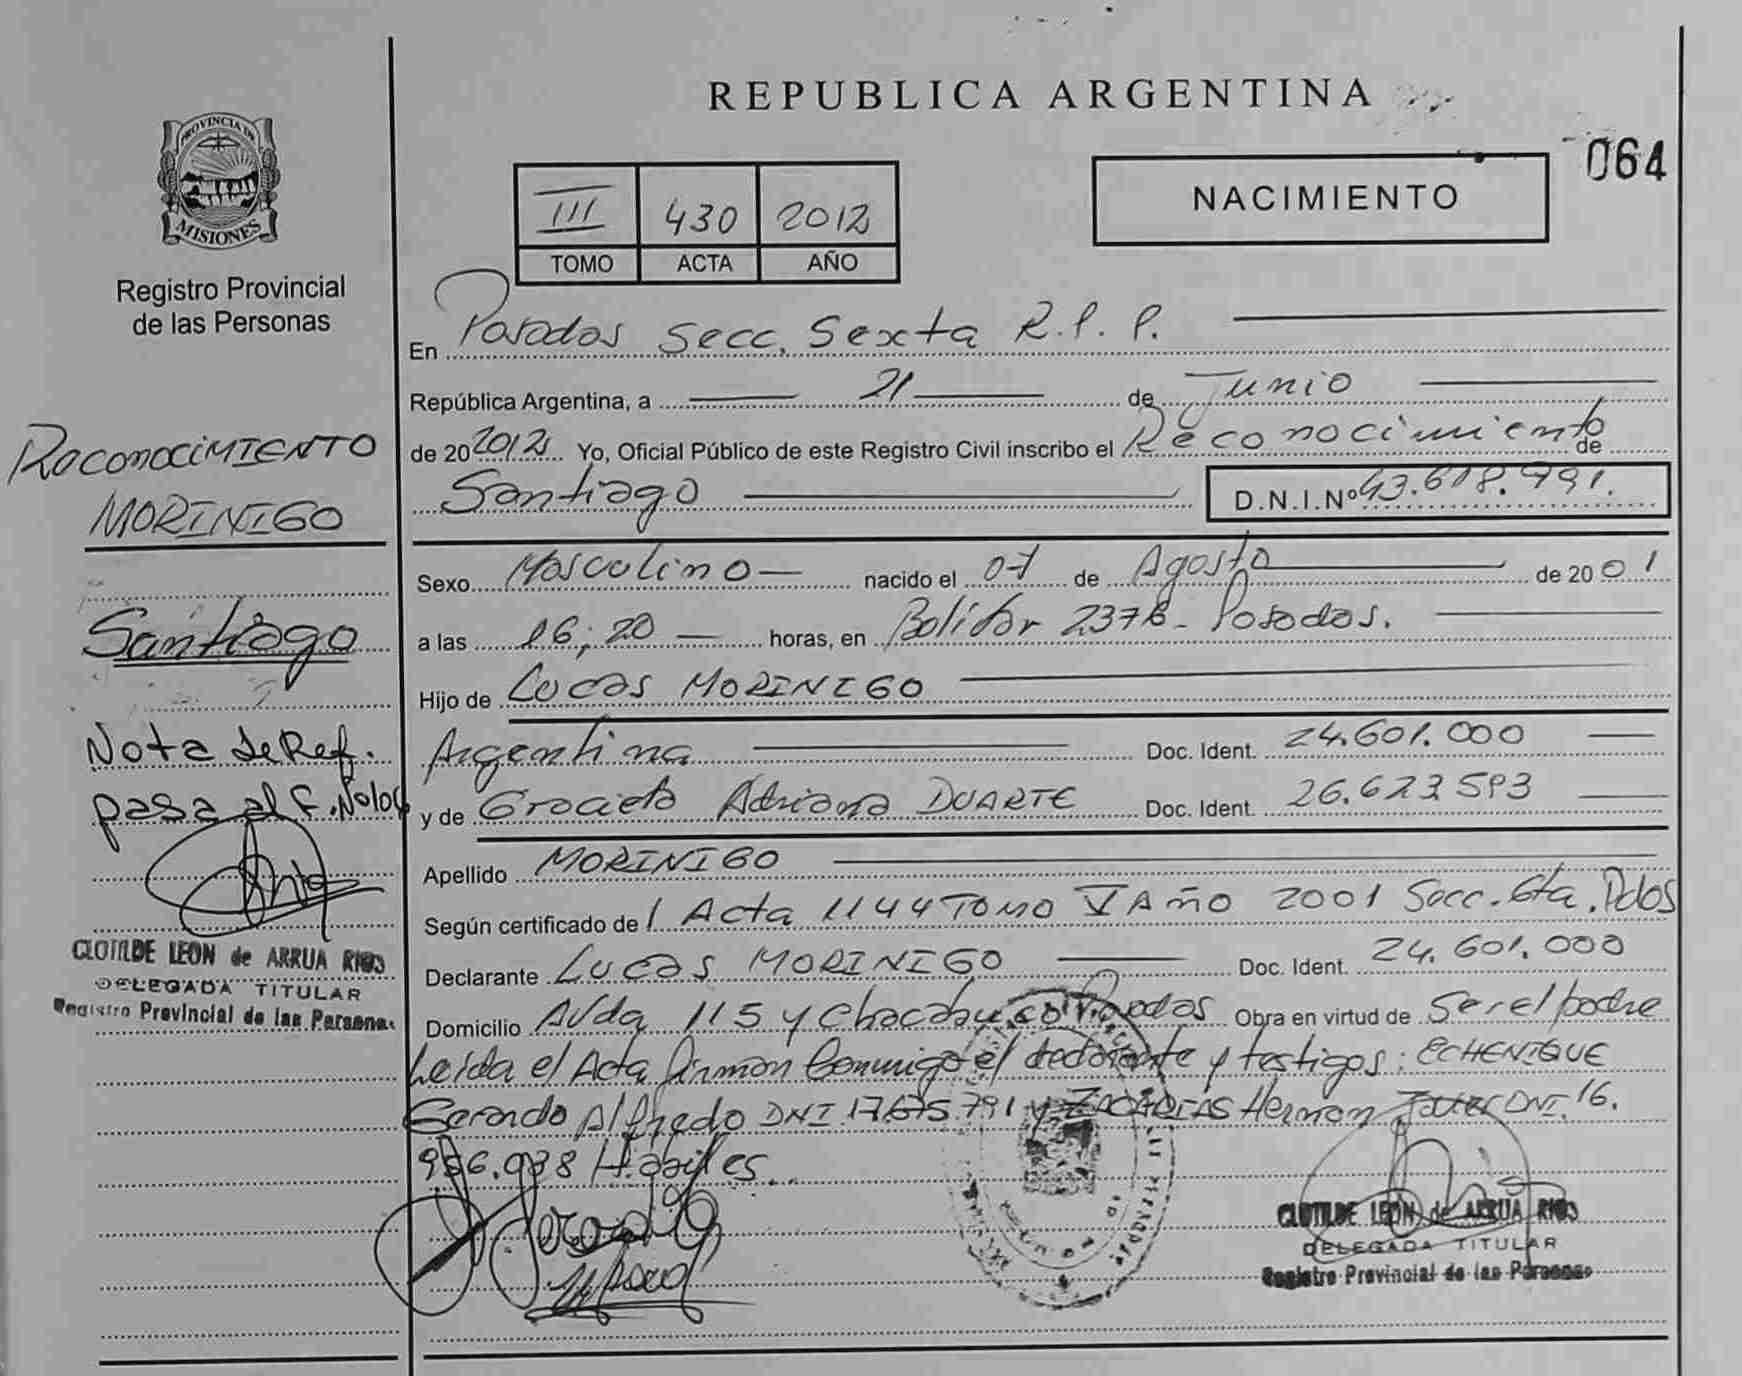 REPUBLICA ARGENTINA
064
PROVINCIA DE
MISIONES
Registro Provincial
de las Personas
III 430 2012
TOMO ACTA AÑO
NACIMIENTO
En Posadas Secc. Sexta R.P.P.
República Argentina, a 21 de Junio
de 20 2012 Yo, Oficial Público de este Registro Civil inscribo el Reconocimiento de
Santiago D.N.I.Nº 43.618.791.
Sexo Masculino nacido el 07 de Agosto de 20 01
a las 16;20 horas, en Bolivar 2378- Posadas.
Hijo de Lucas MORINIGO
Argentina Doc. Ident. 24.601.000
y de Graciela Adriana DUARTE Doc. Ident. 26.623.593
Apellido MORINIGO
Según certificado de Acta 1144 TOMO V Año 2001 Secc. 6ta. Pdas
Declarante Lucas MORINIGO Doc. Ident. 24.601.000
Domicilio Avda 115 y Chacabuco Posadas Obra en virtud de Ser el padre
Leída el Acta firman Conmigo el declarante y testigos: ECHENIQUE
Gerardo Alfredo DNI 17.675.791 y ZACARIAS Hernan Javier DNI. 16.
956.038 Habiles..
RECONOCIMIENTO
MORINIGO
Santiago
Nota de Ref.
pasa al F. Nº 104
CLOTILDE LEON de ARRUA RIOS
DELEGADA TITULAR
Registro Provincial de las Personas
CLOTILDE LEON de ARRUA RIOS
DELEGADA TITULAR
Registro Provincial de las Personas